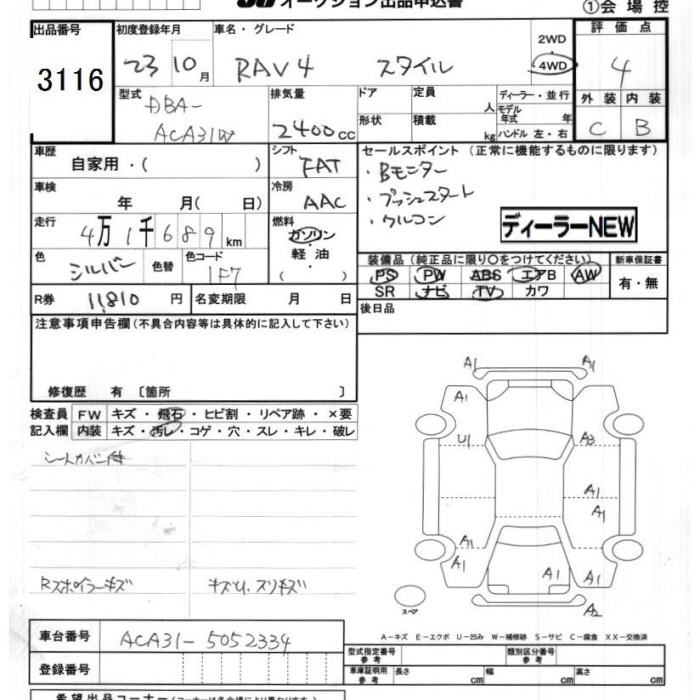 オークション出品申込書
①会場控
出品番号 初度登録年月 車名・グレード 評価点
3116 23 10月 RAV4 スタイル 2WD 4WD 4
型式 DBA-ACA31W 排気量 2400cc ドア 定員 人 ディーラー・並行 外装 内装
形状 積載 kg モデル年式 年 ハンドル 左・右 C B
車歴 自家用・( ) シフト FAT セールスポイント (正常に機能するものに限ります)
車検 年 月( 日) 冷房 AAC ・Bモニター
・プッシュスタート
・クルコン
ディーラーNEW
走行 4万1千689km 燃料 ガソリン・軽油・( )
色 シルバー 色替 色コード 1F7 装備品 (純正品に限り○をつけてください) 新車保証書
PS PW ABS エアB AW 有・無
R券 11,810円 名変期限 月 日 SR ナビ TV カワ
注意事項申告欄 (不具合内容等は具体的に記入して下さい) 後日品
修復歴 有 〔箇所 〕
検査員 FW キズ・飛石・ヒビ割・リペア跡・×要
記入欄 内装 キズ・汚レ・コゲ・穴・スレ・キレ・破レ
シートカバー付
Rスポイラーキズ キズU、スリキズ
A1 A1
A1
U1 A3
A1
A1
A1 A1
スペア A2
A-キズ E-エクボ U-凹み W-補修跡 S-サビ C-腐食 XX-交換済
車台番号 ACA31-5052334
型式指定番号 参考 類別区分番号 参考
登録番号 車庫証明用 参考 長さ cm 幅 cm 高さ cm
希望出品コーナー